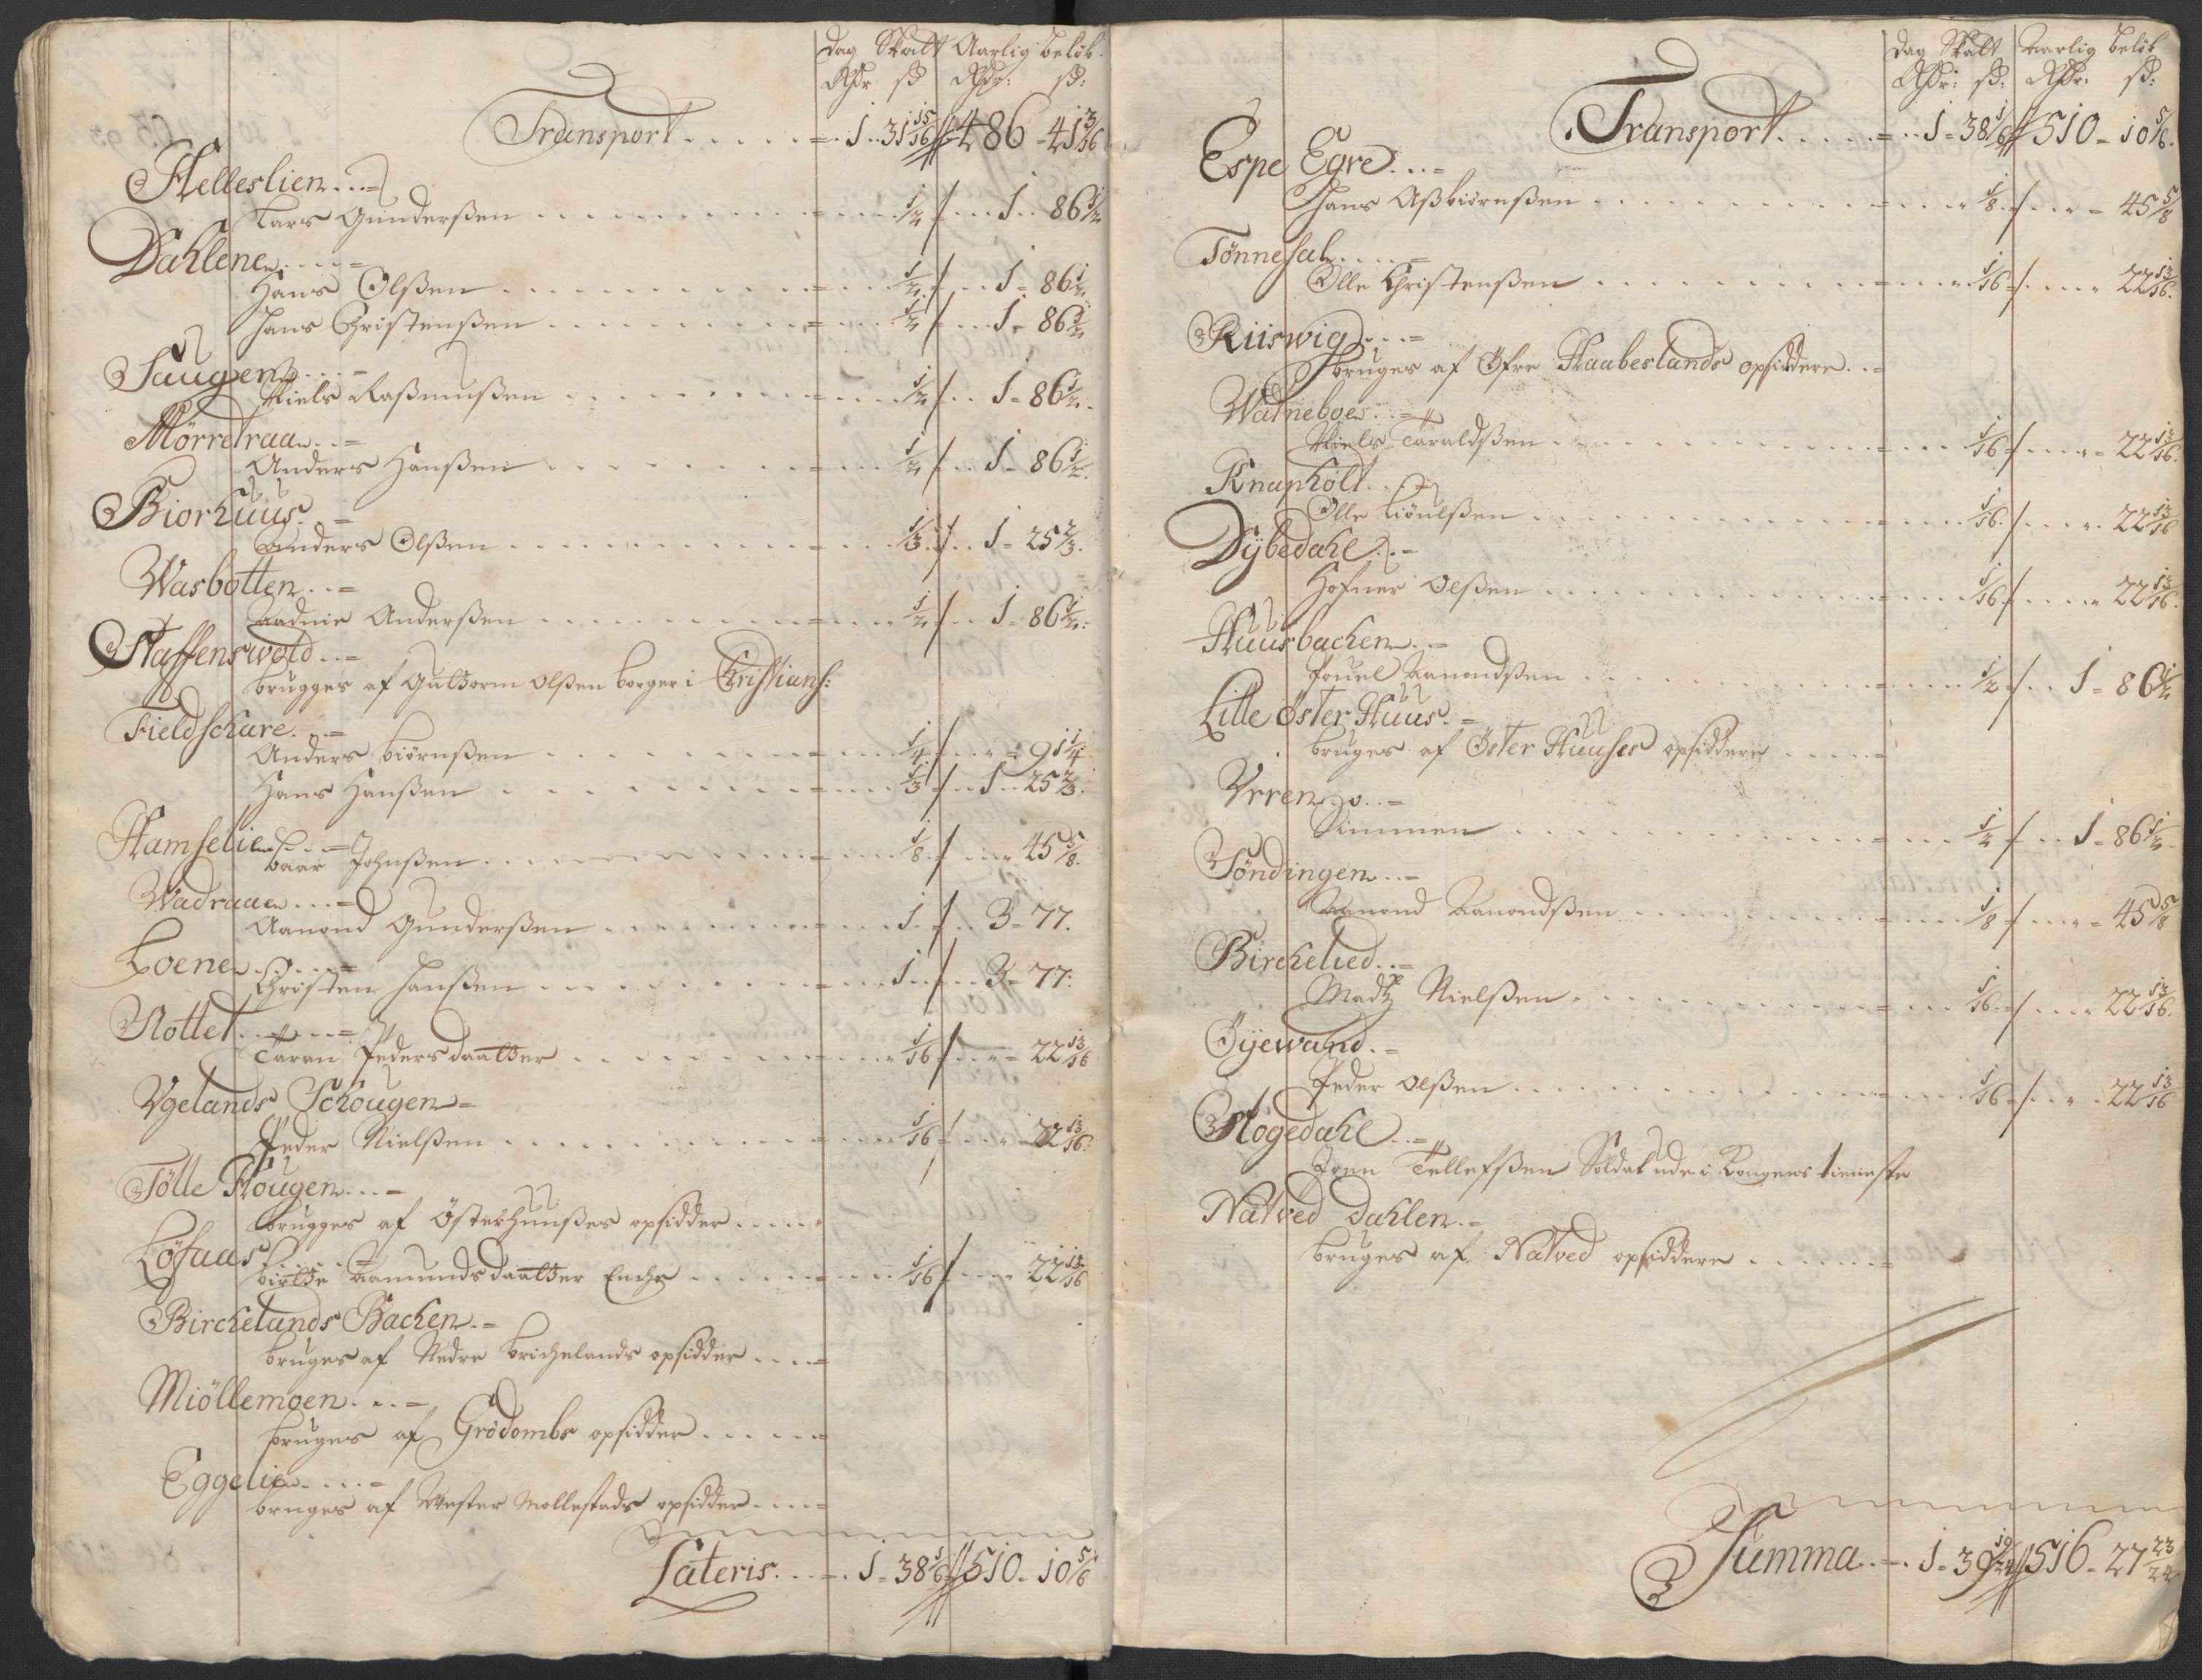 Dag Skatt Aarlig beløb.
Rdr ß Rdr: ß:
Transport . . . . . = . 1 . . 31 15/16 // 486 - 41 3/16
Helleslien . . . =
Lars Gunderßen . . . . . . . . . . 1/2 / . . . 1 . . 86 1/2
Dahlene . . . . =
Hans Olßen . . . . . . . . . . 1/2 / . . . 1 = 86 1/2
Hans Christenßen . . . . . . . . . . 1/2 / . . . 1 = 86 1/2
Haugen . . . =
Niels Raßmußen . . . . . . . . . . 1/2 / . . 1 = 86 1/2.
Mørretraa . . =
Anders Hanßen . . . . . . . . . . 1/2 / . . 1 = 86 1/2.
Biorhuus . =
Anders Olßen . . . . . . . . . . 1/3 / . . 1 = 25 2/3.
Wasbotten . . =
Aadnie Anderßen . . . . . . . . . . 1/2 / . . 1 = 86 1/2.
Staffenswold . . =
brugges af Guttorm Olßen borger i Christians:
Fieldschare . . =
Anders biørnßen . . . . . . . . . . 1/4 / . . . " = 91 1/4
Hans Hanßen . . . . . . . . . . 1/3 / . . 1 . . 25 2/3.
Hamselie . . . =
baar Johnßen . . . . . . . . . . 1/8 . / . . . " 45 5/8.
Wadraae . . . =
Aanond Gunderßen . . . . . . . . . . 1 . / . . 3 = 77.
Loene . . . . =
Christen Hanßen . . . . . . . . . . 1 . . / . . 3 = 77:
Nottet . . . . =
Taran Pedersdaatter . . . . . . . . . . 1/16 / . . . " = 22 13/16
Vgelands Schougen =
Peder Nielßen . . . . . . . . . . 1/16 / . . . " = 22 13/16:
Tölle Hougen . . . =
brugges af Österhuußes opsidder . . . . .
Löfaas . . . . =
birtte Aamundsdaatter Enche . . . . . . . 1/16 / . . . " 22 13/16
Birchelands Bachen . =
bruges af Nedre birchelands opsidder . . . =
Miöllemoen . . . =
bruges af Grödombs opsidder . . . . . =
Eggelie . . . . =
bruges af Wester Mollestads opsidder . . . =
Lateris . . . = . 1 = 38 1/6 // 510 = 10 5/6
Dag Skatt Aarlig beløb
Rdr: ß: Rdr: ß:
Transport . . . . . = . . 1 = 38 1/6 // 510 = 10 5/6.
Espe Egre . . . =
Hans Aßbiørnßen . . . . . . . . . . 1/8 . / . . . " = 45 5/8
Tønnesal . . . . =
Olle Christenßen . . . . . . . . . . 1/16 = / . . . . " 22 13/16.
Riiswig . . . =
bruges af Öfre Haabeslands opsiddere . . =
Watneboe . . . =
Niels Taraldßen . . . . . . . . . . 1/16 / . . . " = 22 13/16.
Knapholt . . . =
Olle Liöulßen . . . . . . . . . . 1/16 . / . . . " . 22 13/16
Dÿbedahl . . =
Hofner Olßen . . . . . . . . . . 1/16 / . . . . " 22 13/16.
Huusbachen . . =
Pouel Aanondßen . . . . . . . . . . 1/2 / . . 1 = 86 1/2
Lille Öster Huus . =
bruges af Öster Huuses opsiddere . . . . . =
Vrren . . . =
Simmen . . . . . . . . . . 1/2 / . . 1 = 86 1/2.
Töndingen . . =
Aanond Aanondßen . . . . . . . . . . 1/8 / . . . " = 45 5/8
Birchelied . . =
Madtz Nielßen . . . . . . . . . . 1/16 = / . . . " 22 13/16.
Öÿewand . =
Peder Olßen . . . . . . . . . . 1/16 = / . . " . 22 13/16
Stogedahl . . =
Joen Tellefßen Soldat ude i Kongens tieniste
Natved Dahlen . =
bruges af Natved opsiddere . . . . . . . =
Summa . . = . 1 = 39 19/24 // 516 = 27 23/24